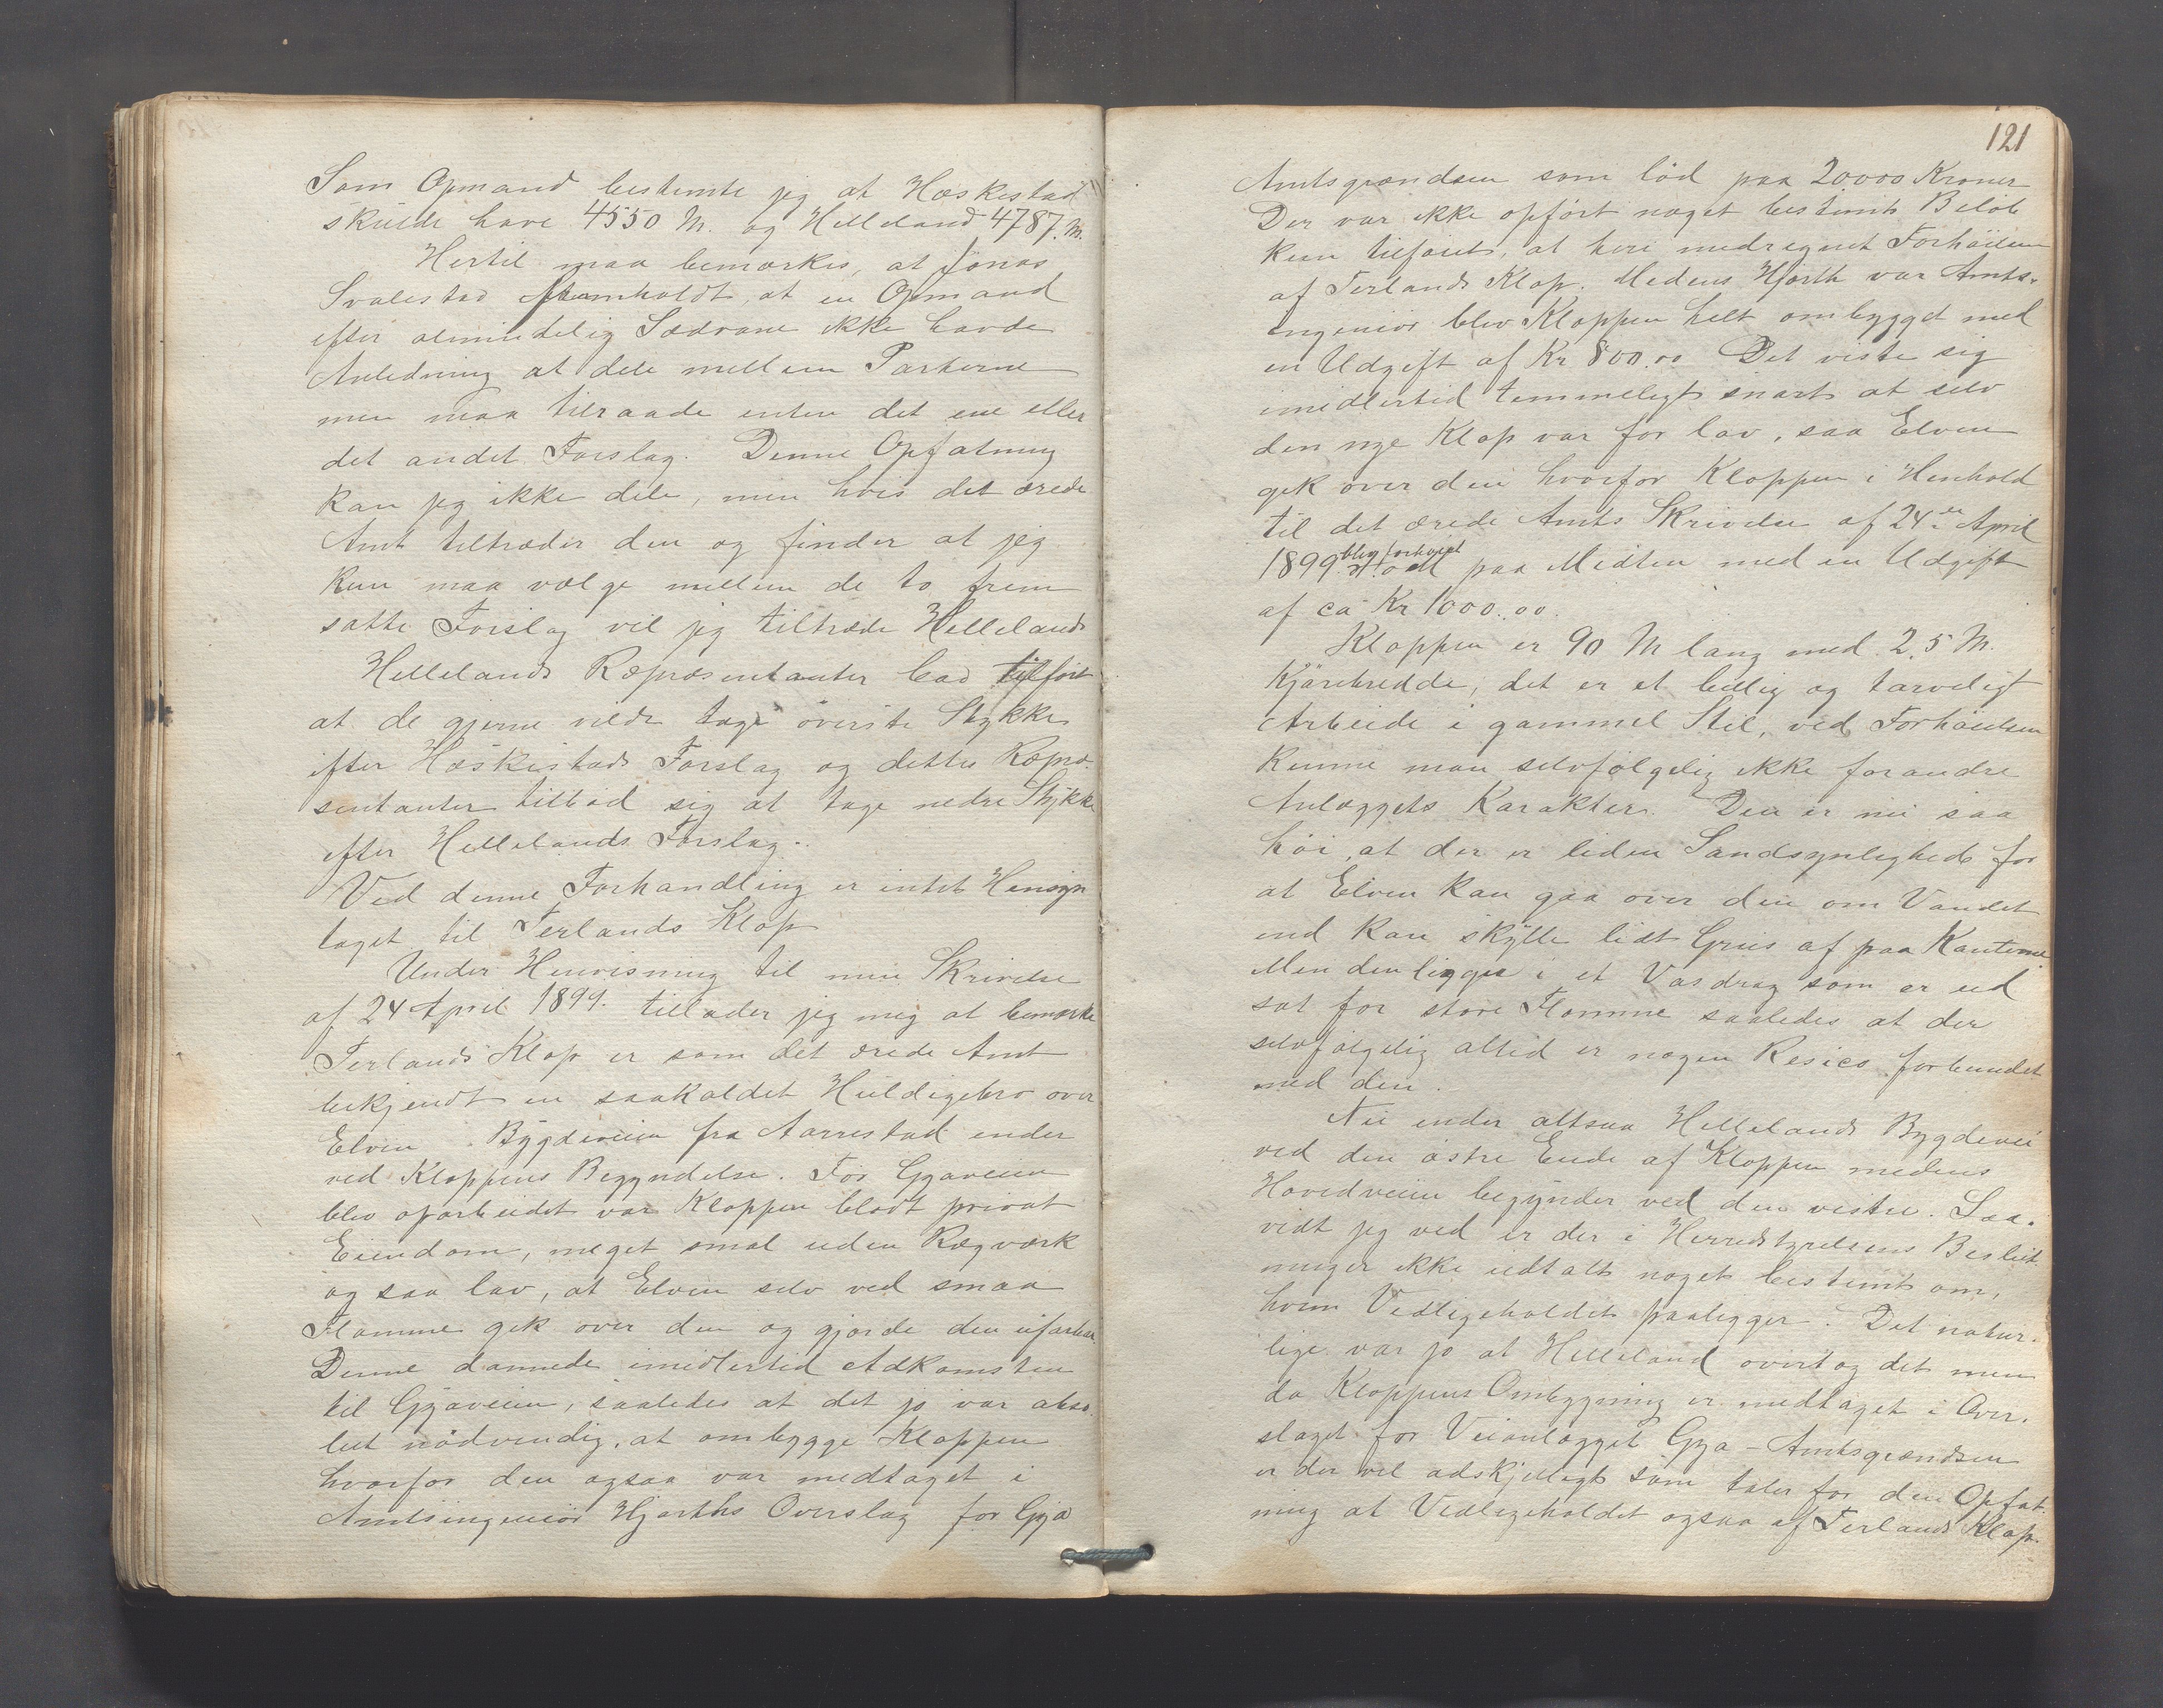 Som Opmand bestemte jeg at Hæskestad
skulde have 4550 M. og Helleland 4787. M.
Hertil maa bemærkes, at Jonas
Svalestad fremholdt, at en Opmand
efter almindelig Sædvane ikke havde
Anledning at dele mellem Parterne
men maa tilraade enten det ene eller
det andet Forslag. Denne Opfatning
kan jeg ikke dele, men hvis det ærede
Amt tiltræder den og finder at jeg
kun maa vælge mellem de to frem
satte Forslag vil jeg tiltræde Hellelands
Hellelands Repræsentanter bad tilført
at de gjerne vilde tage øverste Stykke
efter Hæskestads Forslag og dettes Repræ-
sentanter tilbød sig at tage nedre Stykke
efter Hellelands Forslag.
Ved denne Forhandling er intet Hensyn
taget til Terlands Klop
Under Henvisning til min Skrivelse
af 24 April 1899. tillader jeg mig at bemærke
Terlands Klop er som det ærede Amt
bekjendt en saakaldet Huldigebro over
Elven. Bygdeveien fra Aarrestad ender
ved Kloppens Begyndelse. Før Gyaveien
blev oparbeidet var Kloppen blodt privat
Eiendom, meget smal uden Rægværk
og saa lav, at Elven selv ved smaa
Flomme gik over den og gjorde den ufarbar.
Denne dannede imidlertid Adkomsten
til Gyaveien, saaledes at det jo var abso-
lut nødvendig, at ombygge Kloppen
hvorfor den ogsaa var medtaget i
Amtsingeniør Hjorths Overslag for Gya
121
Amtsgrændsen som lød paa 20000 Kroner
Der var ikke opført noget bestemt Beløb
kun tilføiet, at heri medregnet Forhøielse
af Terlands Klop. Medens Hjorth var Amts-
ingeniør blev Kloppen helt ombygget med
en Udgift af Kr 800.00 Det viste sig
imidlertid temmeligt snart at selv
den nye Klop var for lav, saa Elven
gik over den hvorfor Kloppen i Henhold
til det ærede Amts Skrivelse af 24de April
blev forhøiet
1899 paa Midten med en Udgift
af ca Kr 1000.00.
Kloppen er 90 M lang med 2,5 M.
Kjørebredde, det er et billig og tarveligt
Arbeide i gammel Stil, ved Forhøielsen
kunne man selvfølgelig ikke forandre
Anlæggets Karakter. Den er nu saa
høi, at der er liden Sandsynlighed for
at Elven kan gaa over den om Vandet
end kan skylle lidt Grus af paa Kanterne
Men den ligger i et Vasdrag som er ud
sat for store Flomme saaledes at der
selvfølgelig altid er nogen Resico forbundet
med den.
Nu ender altsaa Hellelands Bygdevei
ved den østre Ende af Kloppen medens
Hovedveien begynder ved den vestre. Saa-
vidt jeg ved er der i Herredstyrelsens Beslut-
ninger ikke udtalt noget bestemt om,
hvem Vedligeholdet paaligger. Det natur-
lige var jo at Helleland overtog det men
da Kloppens Ombygning er medtaget i Over-
slaget for Veianlægget Gya - Amtsgrændsen
er der vel adskjelligt som taler for den Opfat-
ning at Vedligeholdet ogsaa af Terlands Klop.